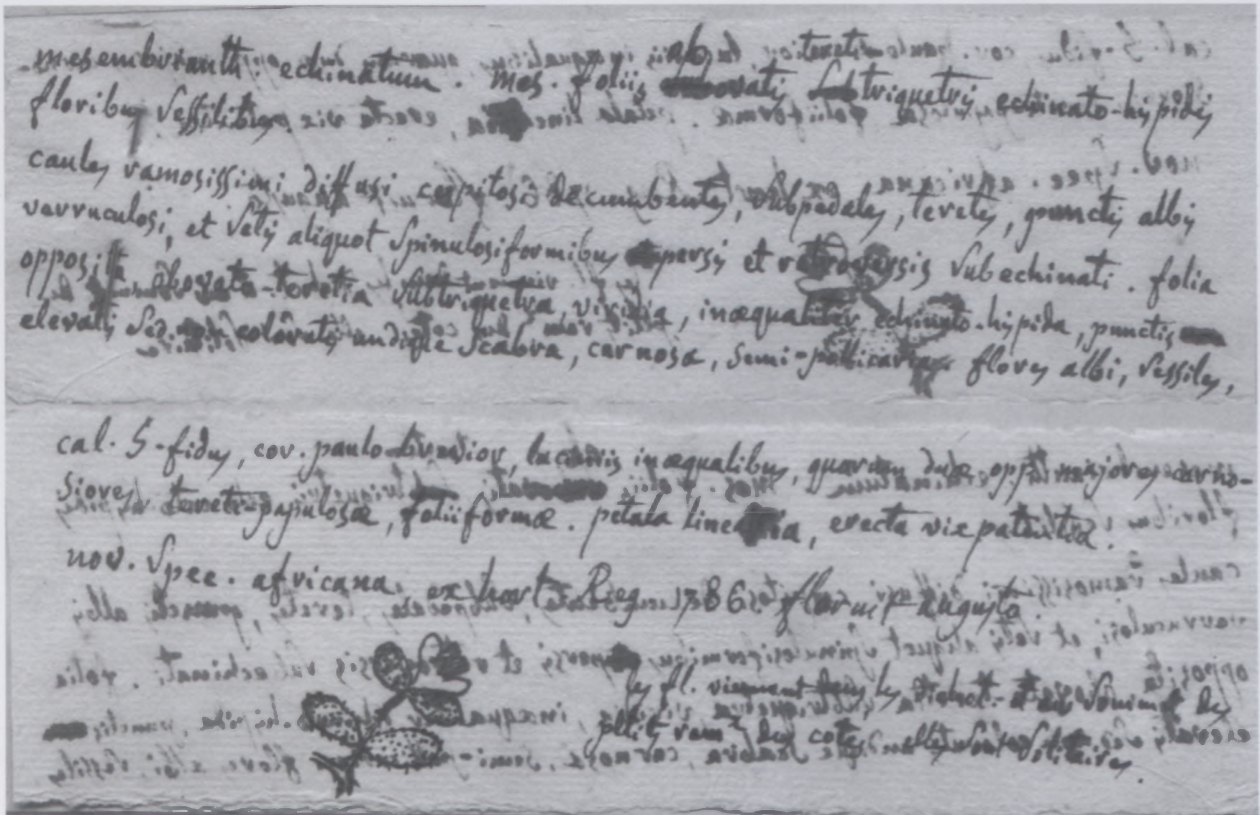 mesembrianth. echinatum. Mes. foliis obovatis subtriquetris echinato-hispidis
floribus sessilibus
caules ramosissimi diffusi cespitosi decumbentes, subpedales, teretes, punctis albis
verruculosi, et setis aliquot spinulosiformibus et retroversis subechinati. folia
opposita obovato-teretia subtriquetra, viridia, inæqualiter echinato-hispida, punctis
elevatis sed non coloratis undique scabra, carnosa, semi-pollicaria. flores albi, sessiles,
cal. 5-fidus, cor. paulo brevior, laciniis inæqualibus, quarum duæ opp. majores carno-
siores papulosæ, foliiformæ. petala linearia, erecta vix patentia.
nov. spec. africana ex hort. Reg. 1786 floruit augusto
les fl. viennent dans les et au sommet des
petit ram. des cotes elles sont solitaires.